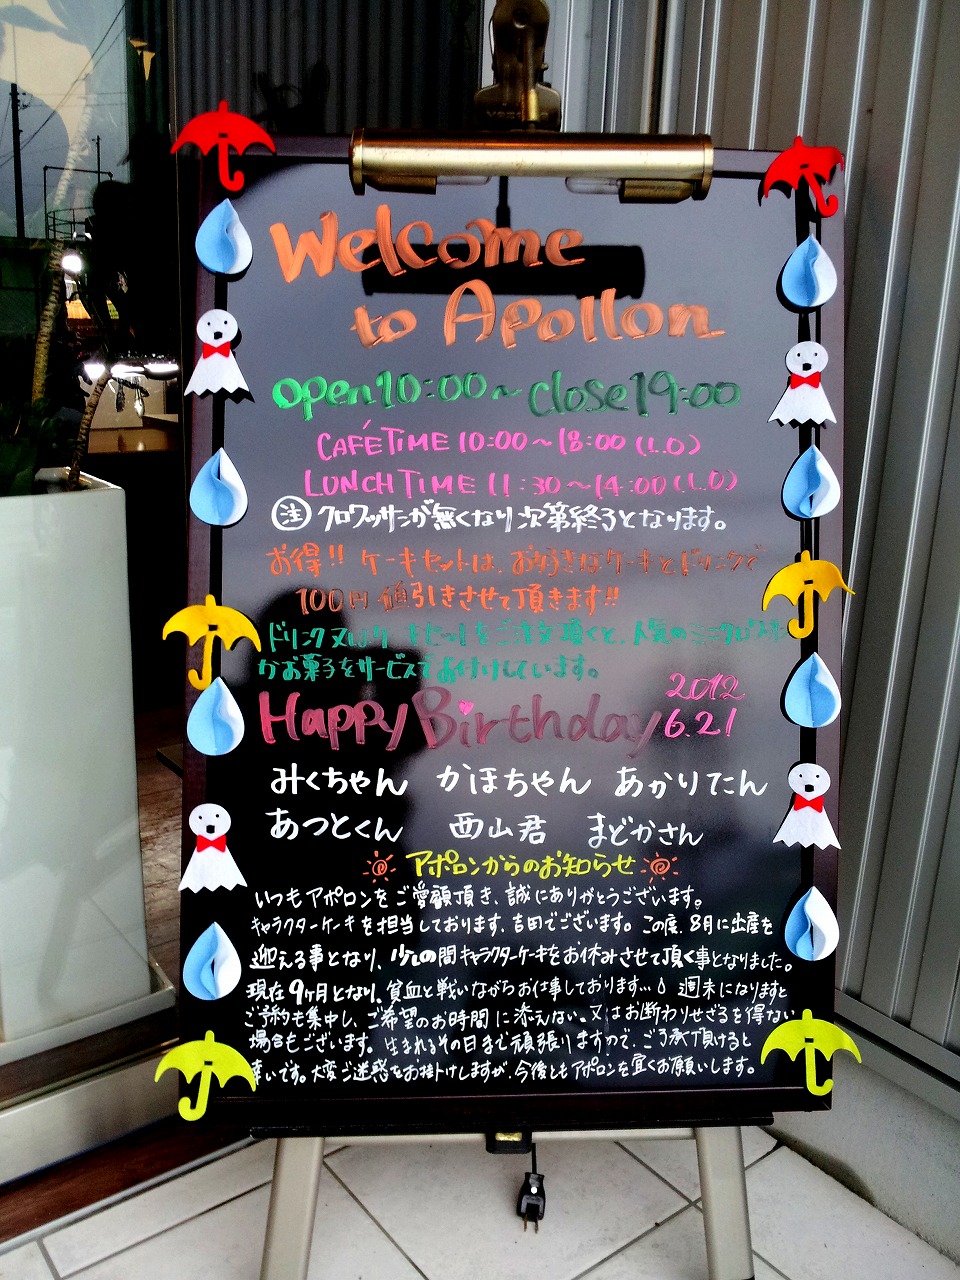 Welcome
to Apollon
open10:00~close19:00
CAFÉTIME 10:00~18:00(L.O)
LUNCHTIME 11:30~14:00(L.O)
注 クロワッサンが無くなり次第終了となります。
お得!! ケーキセットは、お好きなケーキとドリンクで
100円値引きさせて頂きます!!
ドリンク又はケーキセットをご注文頂くと、人気のミニクロワッサン
かお菓子をサービスでお付けしています。
Happy Birthday 2012 6.21
みくちゃん かほちゃん あかりたん
あつとくん 西山君 まどかさん
アポロンからのお知らせ
いつもアポロンをご愛顧頂き、誠にありがとうございます。
キャラクターケーキを担当しております、吉田でございます。この度、8月に出産を
迎える事となり、少しの間キャラクターケーキをお休みさせて頂く事となりました。
現在9ヶ月となり、貧血と戦いながらお仕事しております… 週末になりますと
ご予約も集中し、ご希望のお時間に添えない。又はお断わりせざるを得ない
場合もございます。生まれるその日まで頑張りますので、ご了承頂けると
幸いです。大変ご迷惑をお掛けしますが、今後ともアポロンを宜くお願いします。